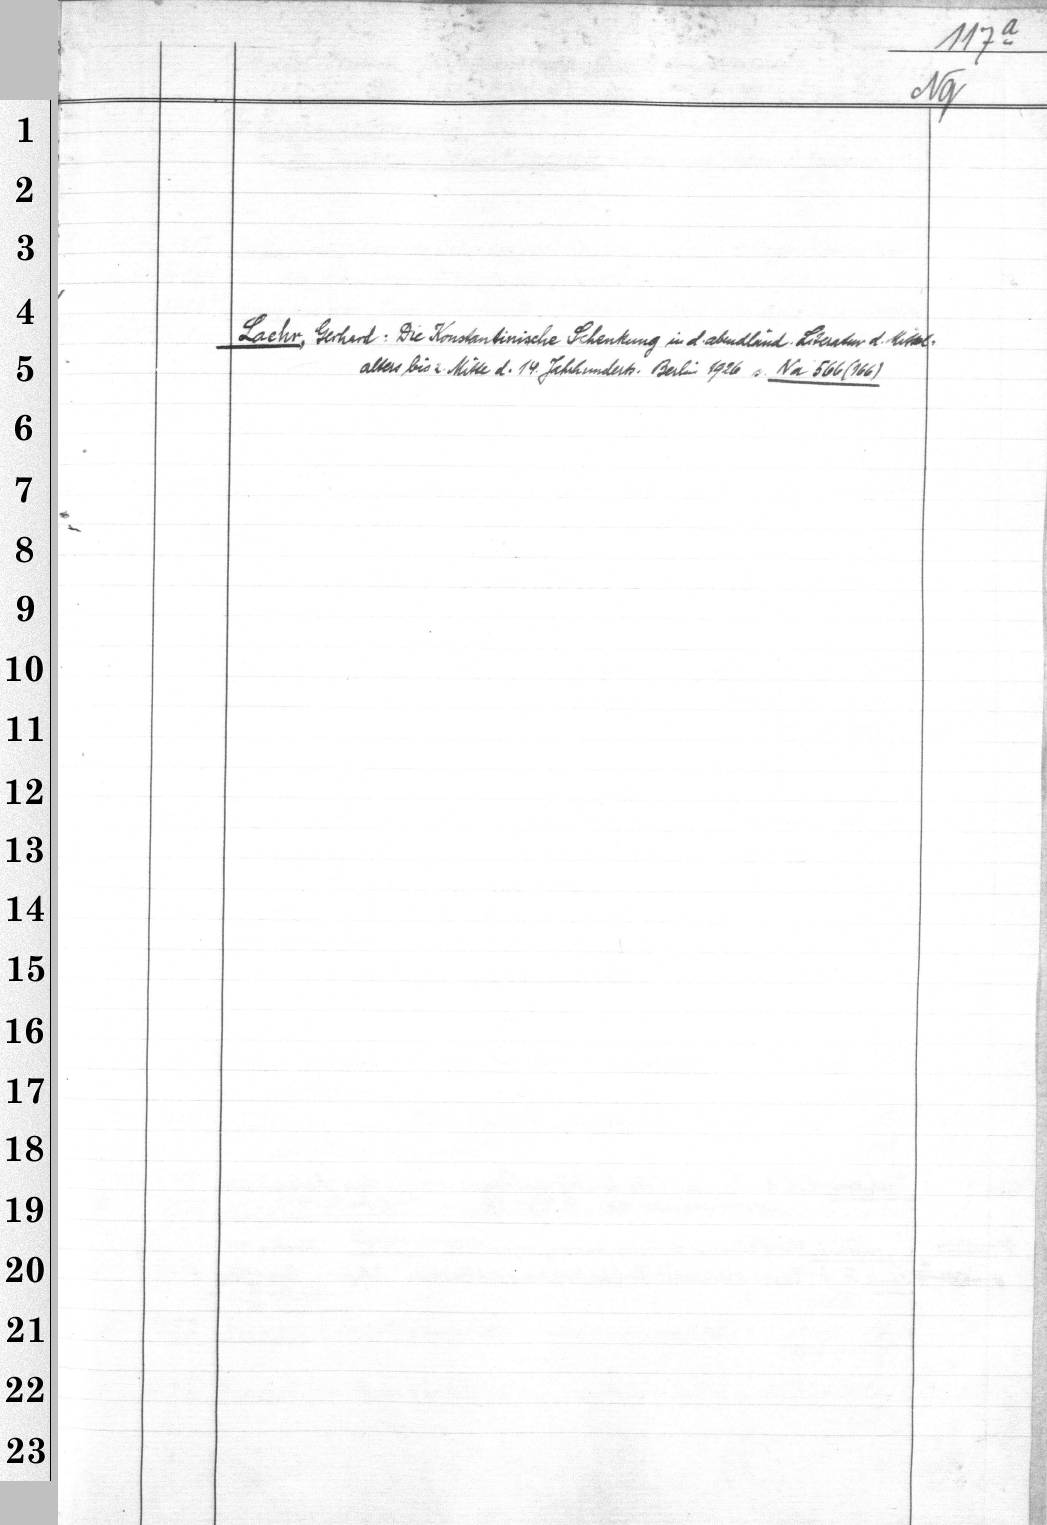 117a
Nq
1
2
3
4
Laehr, Gerhard: Die Konstantinische Schenkung in d. abendländ. Literatur d. Mittel-
5
alters bis z. Mitte d. 14. Jahrhunderts. Berlin 1926 s. Na 566 (166)
6
7
8
9
10
11
12
13
14
15
16
17
18
19
20
21
22
23